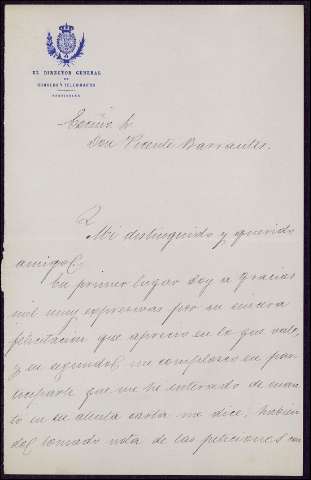 EL DIRECTOR GENERAL
DE
CORREOS Y TELÉGRAFOS
PARTICULAR
Excmo. Sr.
Don Vicente Barrantes.
Mi distinguido y querido
amigo:
En primer lugar doy a V. gracias
mil muy expresivas por su sincera
felicitación que aprecio en lo que vale,
y en segundo, me complazco en par-
ticiparle que me he enterado de cuan-
to en su atenta carta me dice, habien-
do tomado nota de las peticiones con